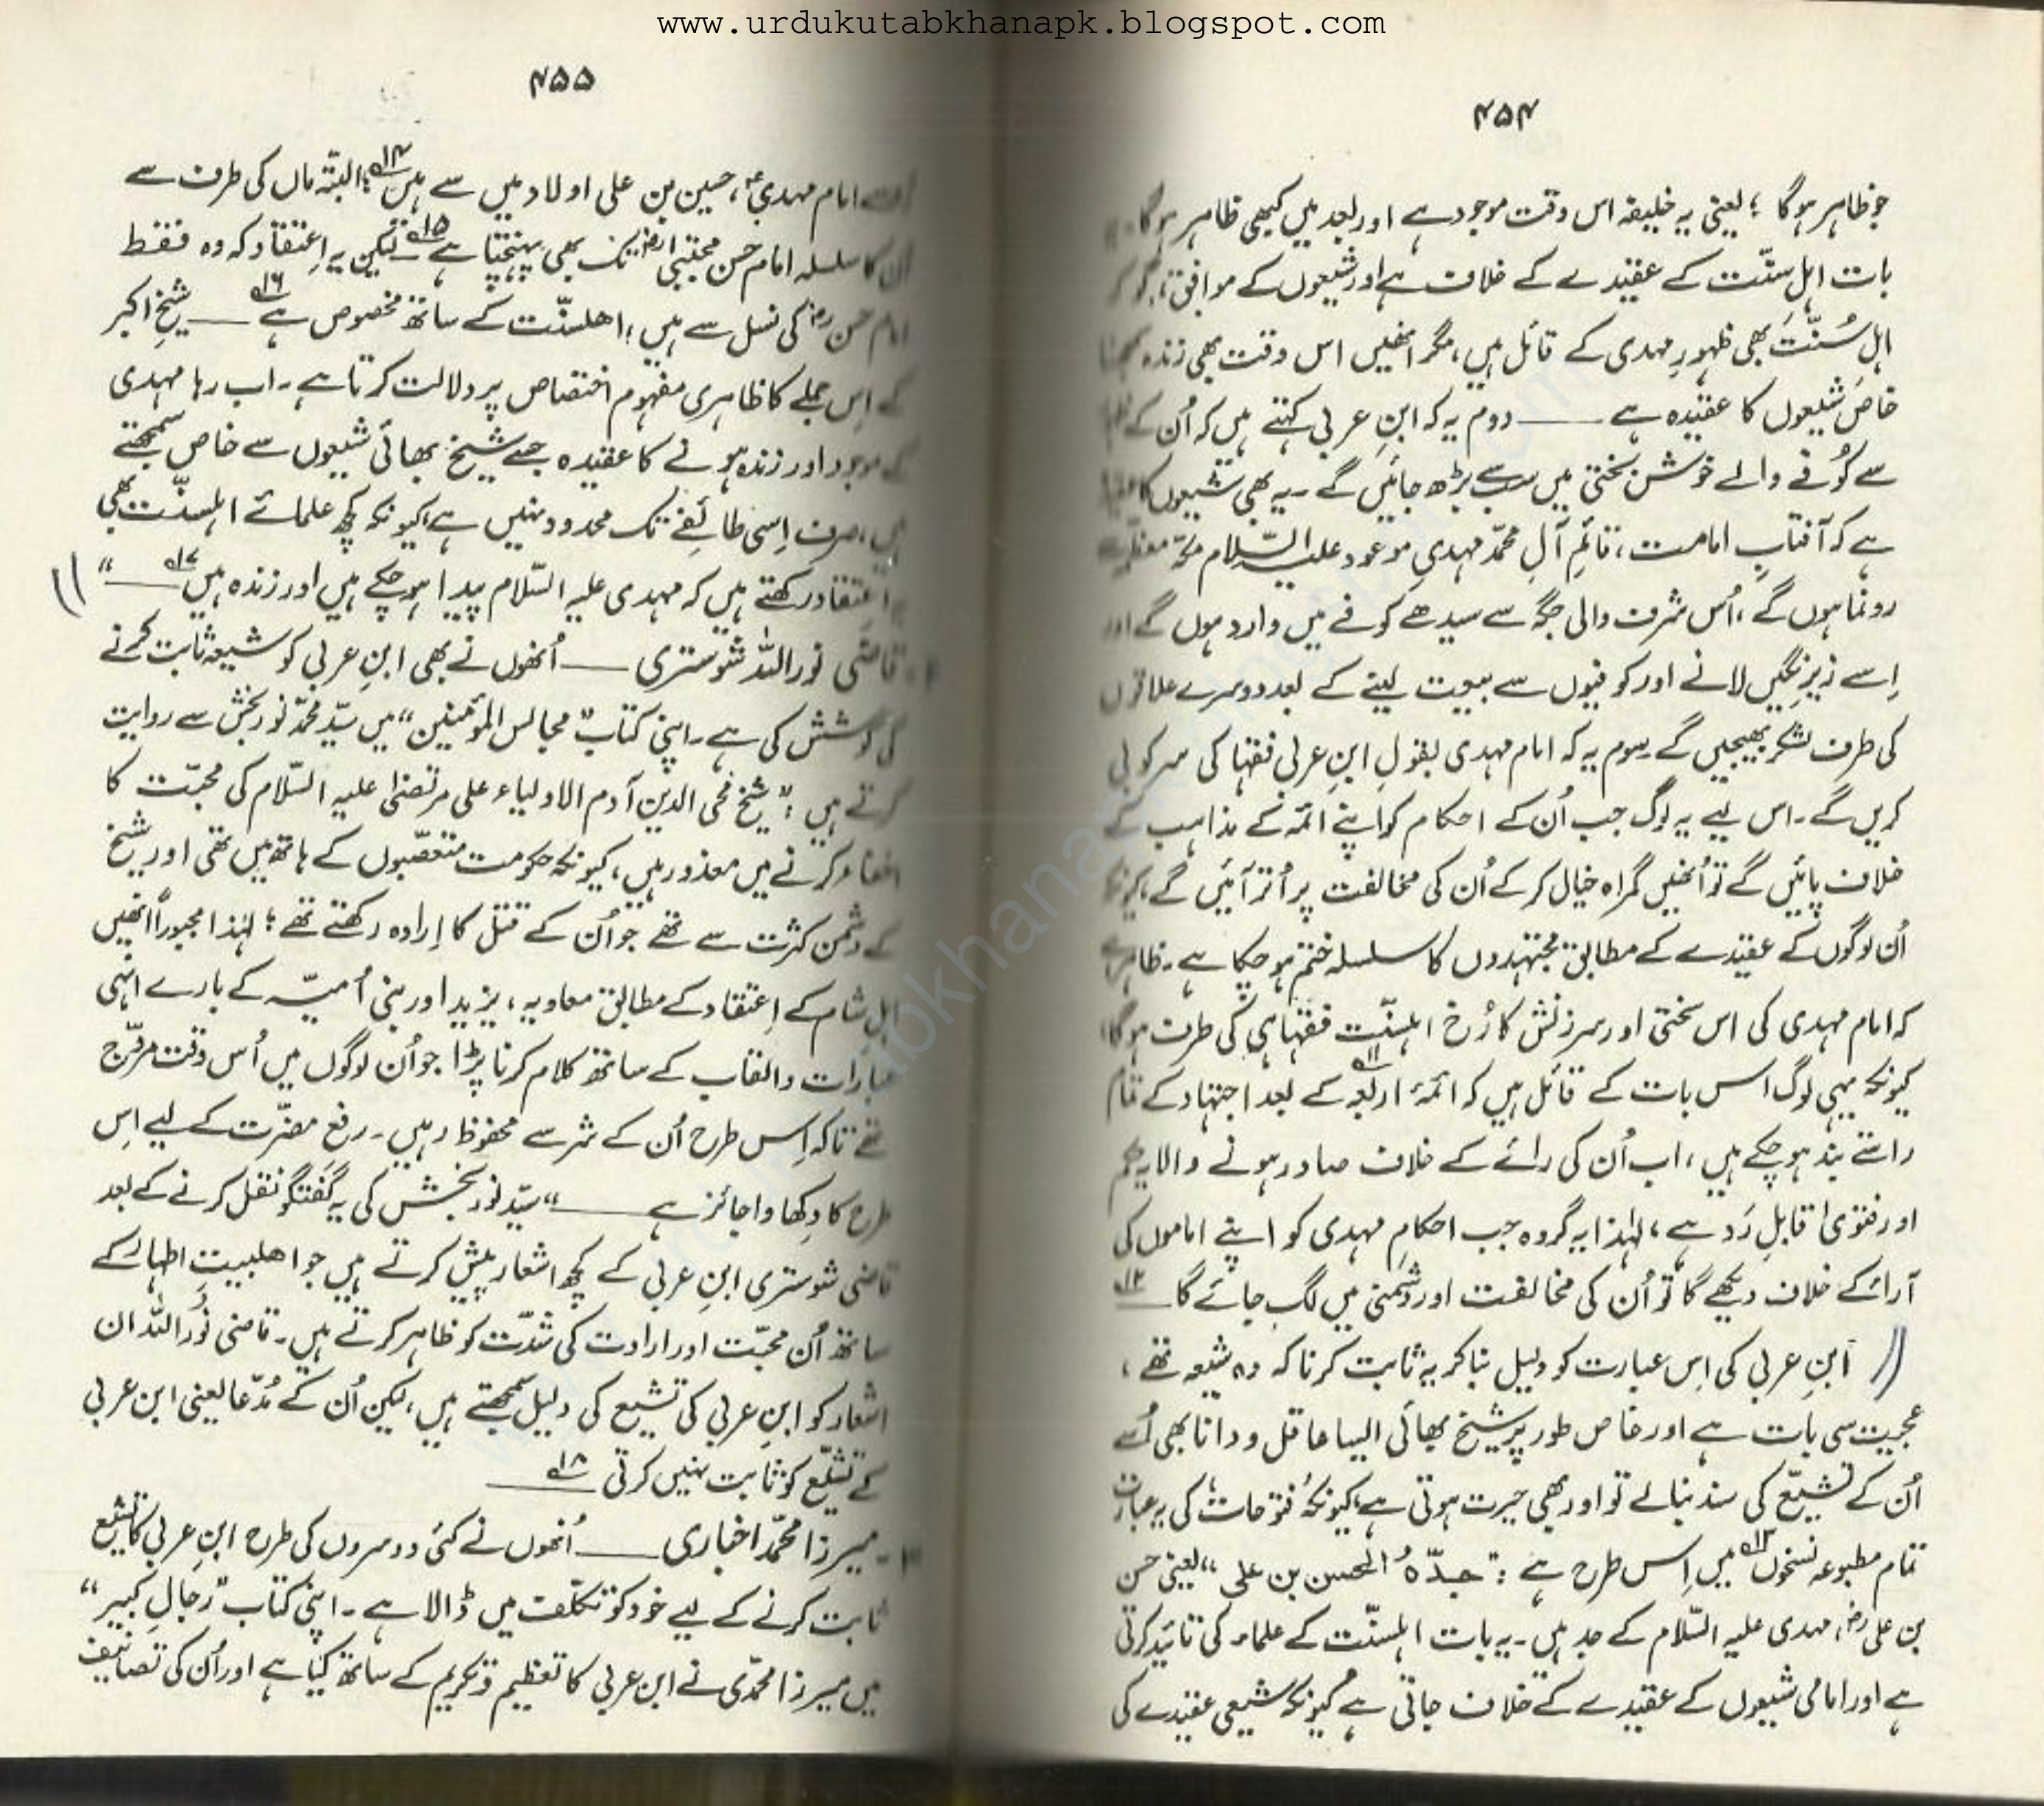 www.urdukutabkhanapk.blogspot.com
۴۵۴
جو ظاہر ہوگا ؛ یعنی یہ خلیفہ اس وقت موجود ہے اور بعد میں کبھی ظاہر ہوگا۔
بات اہلِ سنّت کے عقیدے کے خلاف ہے اور شیعوں کے موافق،
اہل سُنّت بھی ظہورِ مہدی کے قائل ہیں، مگر انھیں اس وقت بھی زندہ سمجھنا
خاص شیعوں کا عقیدہ ہے ــــــ دوم یہ کہ ابنِ عربی کہتے ہیں کہ اُن کے
سے کُوفے والے خوش بختی میں سب سے بڑھ جائیں گے ۔ یہ بھی شیعوں کا
ہے کہ آفتابِ امامت، قائمِ آلِ محمّد مہدیِ موعود علیہ السّلام مکّہ معظّمہ
رونما ہوں گے، اُس شرف والی جگہ سے سیدھے کوفے میں وارد ہوں گے اور
اِسے زیرِ نگیں لانے اور کوفیوں سے بیعت لینے کے بعد دوسرے علاقوں
کی طرف لشکر بھیجیں گے۔ سوم یہ کہ امام مہدی بقولِ ابنِ عربی فقہا کی سرکوبی
کریں گے۔ اس لیے یہ لوگ جب اُن کے احکام کو اپنے ائمّہ کے مذاہب کے
خلاف پائیں گے تو اُنھیں گمراہ خیال کر کے اُن کی مخالفت پر اُتر آئیں گے، کیونکہ
اُن لوگوں کے عقیدے کے مطابق مجتہدوں کا سلسلہ ختم ہو چکا ہے۔ ظاہر ہے
کہ امام مہدی کی اس سختی اور سرزنش کا رُخ اہلسنّت فقہا ہی کی طرف ہوگا،
کیونکہ یہی لوگ اس بات کے قائل ہیں کہ ائمّۂ اربعہ ۱۱؎ کے بعد اجتہاد کے تمام
راستے بند ہو چکے ہیں، اب اُن کی رائے کے خلاف صادر ہونے والا ہر حکم
اور فتویٰ قابلِ رَد ہے، لہٰذا یہ گروہ جب احکامِ مہدی کو اپنے اماموں کی
آرائے کے خلاف دیکھے گا تو اُن کی مخالفت اور دشمنی میں لگ جائے گا ۱۲؎
ابنِ عربی کی اِس عبارت کو دلیل بنا کر یہ ثابت کرنا کہ وہ شیعہ تھے،
عجیب سی بات ہے اور خاص طور پر شیخ بھائی ایسا عاقل و دانا بھی اُسے
اُن کے تشیّع کی سند بنا لے تو اور بھی حیرت ہوتی ہے، کیونکہ فتوحات کی یہ عبارت
تمام مطبوعہ نسخوں ۱۳؎ میں اِس طرح ہے : "جدّہُ الحسن بن علی" یعنی حسن
بن علی رض، مہدی علیہ السّلام کے جد ہیں۔ یہ بات اہلسنّت کے علماء کی تائید کرتی
ہے اور امامی شیعوں کے عقیدے کے خلاف جاتی ہے کیونکہ شیعی عقیدے کی
۴۵۵
سے امام مہدیؑ، حسین بن علی اولاد میں سے ہیں ۱۴؎؛ البتّہ ماں کی طرف سے
اُن کا سلسلہ امام حسن مجتبیٰ رض تک بھی پہنچتا ہے ۱۵؎۔ لیکن یہ اِعتقاد کہ وہ فقط
امام حسن رض کی نسل سے ہیں، اھلسنّت کے ساتھ مخصوص ہے ۱۶؎ ــــــ شیخِ اکبر
کے اِس جملے کا ظاہری مفہوم اختصاص پر دلالت کرتا ہے ۔ اب رہا مہدی
کے موجود اور زندہ ہونے کا عقیدہ جسے شیخ بھائی شیعوں سے خاص سمجھتے
ہیں، صرف اِسی طائفے تک محدود نہیں ہے، کیونکہ کچھ علمائے اہلسنّت بھی
یہ اعتقاد رکھتے ہیں کہ مہدی علیہ السّلام پیدا ہو چکے ہیں اور زندہ ہیں ۱۷؎ ــــــ"
قاضی نوراللہ شوستری ــــــ اُنھوں نے بھی ابنِ عربی کو شیعہ ثابت کرنے
کی کوشش کی ہے۔ اپنی کتاب "مجالس المؤمنین" میں سیّد محمّد نوربخش سے روایت
کرتے ہیں : "شیخ محی الدین آدم الاولیاء علی مرتضیٰ علیہ السّلام کی محبّت کا
اخفاء کرنے میں معذور ہیں، کیونکہ حکومت متعصّبوں کے ہاتھ میں تھی اور شیخ
کے دشمن کثرت سے تھے جو اُن کے قتل کا اِرادہ رکھتے تھے؛ لہٰذا مجبوراً انھیں
اہلِ شام کے اِعتقاد کے مطابق معاویہ، یزید اور بنی اُمیّہ کے بارے انہی
عبارات و القاب کے ساتھ کلام کرنا پڑا جو اُن لوگوں میں اُس وقت مروّج
تھے تاکہ اِس طرح اُن کے شر سے محفوظ رہیں۔ رفعِ مضرّت کے لیے اِس
طرح کا دِکھاوا جائز ہے ــــــ" سیّد نوربخش کی یہ گفتگو نقل کرنے کے بعد
قاضی شوستری ابنِ عربی کے کچھ اشعار پیش کرتے ہیں جو اھلبیتِ اطہار کے
ساتھ اُن محبّت اور ارادت کی شدّت کو ظاہر کرتے ہیں۔ قاضی نُوراللہ ان
اشعار کو ابنِ عربی کی تشیع کی دلیل سمجھتے ہیں، لیکن اُن کے مُدّعا یعنی ابن عربی
کے تشیّع کو ثابت نہیں کرتی ۱۸؎
میرزا محمّد اخباری ــــــ اُنھوں نے کئی دوسروں کی طرح ابنِ عربی کا تشیع
ثابت کرنے کے لیے خود کو تکلّف میں ڈالا ہے ۔ اپنی کتاب "رجالِ کبیر"
میں میرزا محمّدی نے ابن عربی کا تعظیم و تکریم کے ساتھ کیا ہے اور اُن کی تصانیف